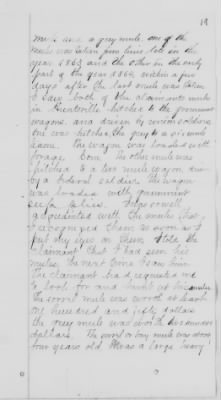 mule and a grey mule one of the
mules was taken from him late in the
year 1863 and the other in the early
part of the year 1864, within a few
days after the last mule was taken
I saw both of the claimants mules
in hitched to the government
wagons, and driven by
one was hitched, the grey to a six mule
team. The wagon was loaded with
forage Corn. The other mule was
hitched to a two mule wagon, driven
by a Federal soldier. The wagon
was loaded with government
supplies. I was so well
acquainted with the mules that
I recognized them as soon as I
put my eyes on them. I told the
claimant that I had seen his
mules, the next time I saw him.
The claimant had requested me
to look for and hunt up his mules
the sorrel mule was worth at least
one hundred and fifty dollars
the grey mule was worth
dollars. The sorrel mule was about
four years old. Was a large heavy